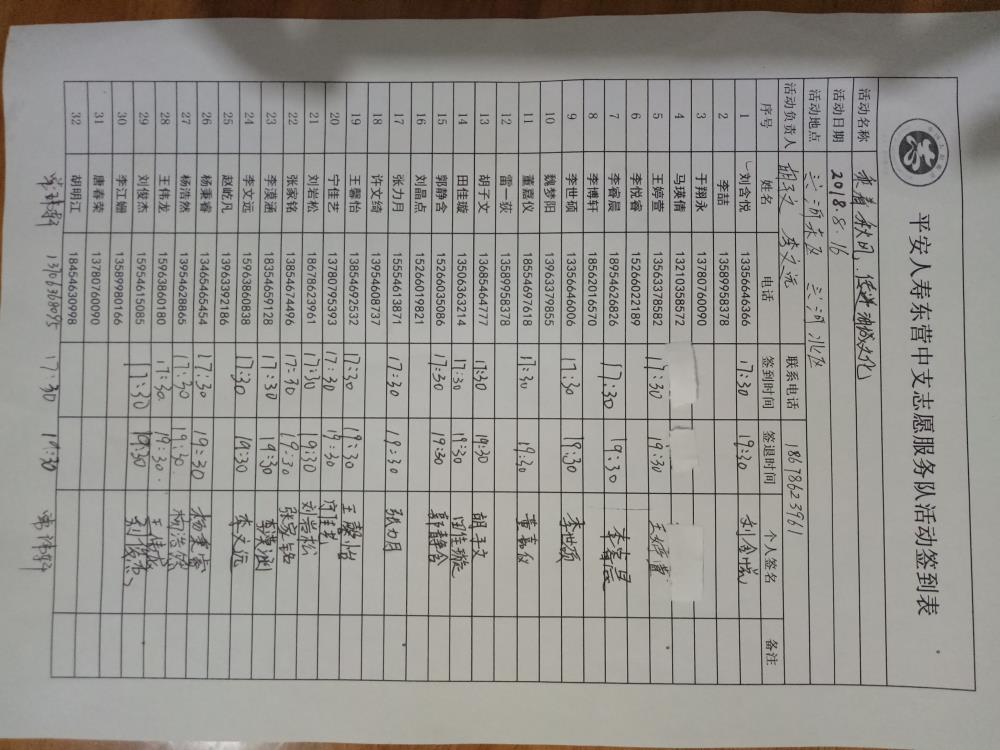 平安人寿东营中支志愿服务队活动签到表
活动名称
活动日期 2018.8.16
活动地点
活动负责人 胡子文 李文远 联系电话 18678623961
序号 姓名 电话 签到时间 签退时间 个人签名 备注
1 刘含悦 13356646366 17:30 19:30 刘含悦
2 李喆 13589958378
3 于翔永 13780760090
4 马瑛倩 13210358572
5 王婷萱 13563378582 17:30 19:30 王婷萱
6 李悦睿 15266022189
7 李睿晨 18954626826 17:30 19:30 李睿晨
8 李博轩 18562016570
9 李世硕 13356646006 17:30 19:30 李世硕
10 魏梦阳 13963379855
11 董嘉仪 18554697618 17:30 19:30 董嘉仪
12 雷一荻 13589958378
13 胡子文 13685464777 17:30 19:30 胡子文
14 田佳璇 13506363214 17:30 19:30 田佳璇
15 郭静含 15266035086 17:30 19:30 郭静含
16 刘晶点 15266019821
17 张力月 15554613871 17:30 19:30 张力月
18 许文绮 13954608737
19 王馨怡 13854692532 17:30 19:30 王馨怡
20 宁佳艺 13780795393 17:30 19:30 宁佳艺
21 刘岩松 18678623961 17:30 19:30 刘岩松
22 张家铭 13854674496 17:30 19:30 张家铭
23 李漠涵 18354659128 17:30 19:30 李漠涵
24 李文远 15963860838 17:30 19:30 李文远
25 赵屹凡 13963392186
26 杨秉睿 13465465454 17:30 19:30 杨秉睿
27 杨浩然 13954628865 17:30 19:30 杨浩然
28 王伟龙 15963860180 17:30 19:30 王伟龙
29 刘俊杰 15954615085 17:30 19:30 刘俊杰
30 李江姗 13589980166
31 唐春荣 13780760090
32 胡明江 18454630998
13706368095 17:30 19:30